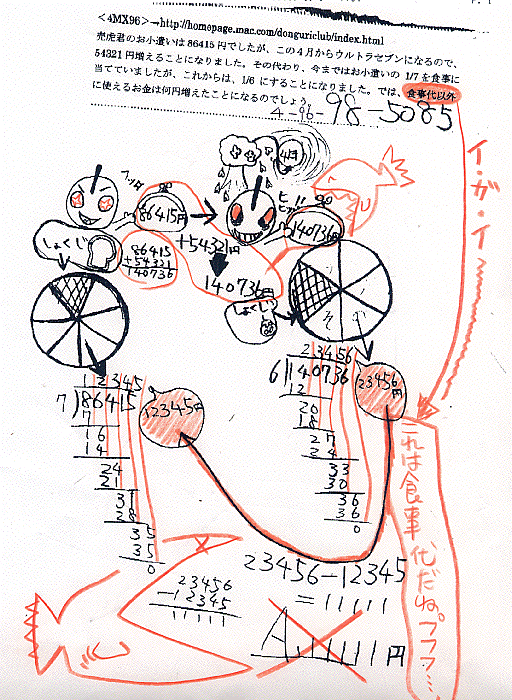 <4MX96>→http://homepage.mac.com/donguriclub/index.html
売虎君のお小遣いは86415円でしたが、この4月からウルトラセブンになるので、
54321円増えることになりました。その代わり、今まではお小遣いの 1/7 を食事に
当てていましたが、これからは、1/6 にすることになりました。では、食事代以外
に使えるお金は何円増えたことになるのでしょう。
4-96-98-5085
イ・ガ・イ
4月
86415円
140736円
しょくじ
86415
+54321
140736
+54321円
140736円
しょくじ
12345
7)86415
7
16
14
24
21
31
28
35
35
0
12345円
23456
6)140736
12
20
18
27
24
33
30
36
36
0
23456円
これは食事代だね。フフフ…
23456-12345
=11111
23456
-12345
11111
A 11111円